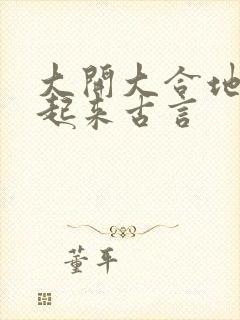 大開大合地
起来古言
董平